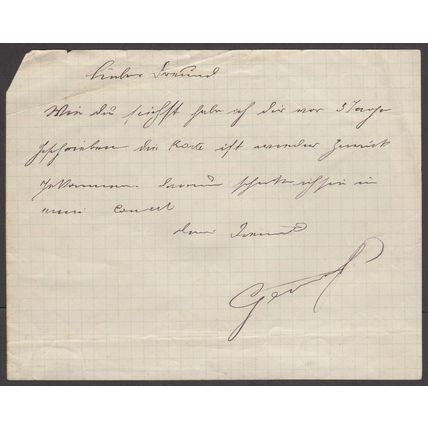 Lieber Freund
Wie du siehst habe ich dir vor 3 Tage
geschrieben die Karte ist wieder zurück
gekommen darum schick ich sie in
ein Couvert
dein Freund